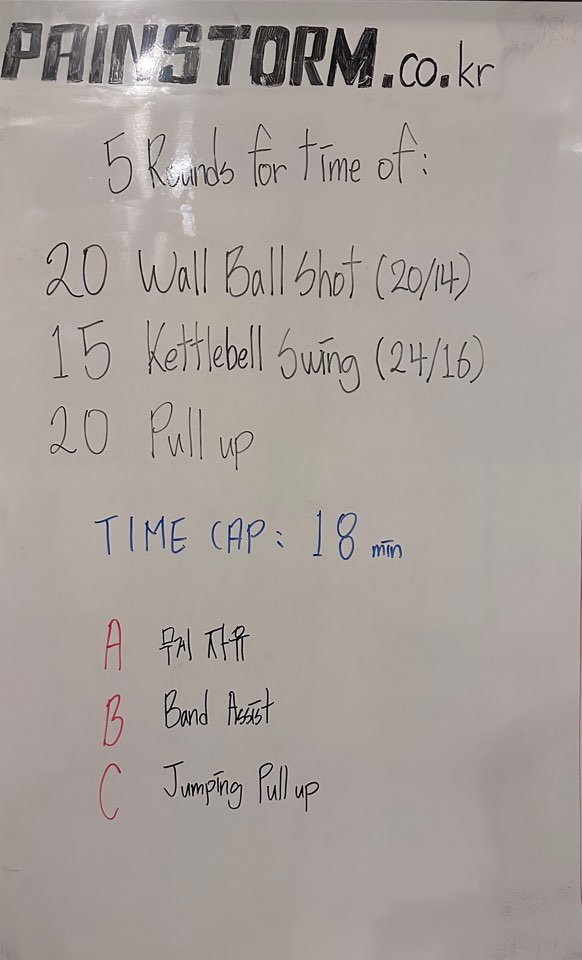 PAINSTORM.co.kr
5 Rounds for time of:
20 Wall Ball Shot (20/14)
15 Kettlebell Swing (24/16)
20 Pull up
TIME CAP: 18 min
A 무게 자유
B Band Assist
C Jumping Pull up